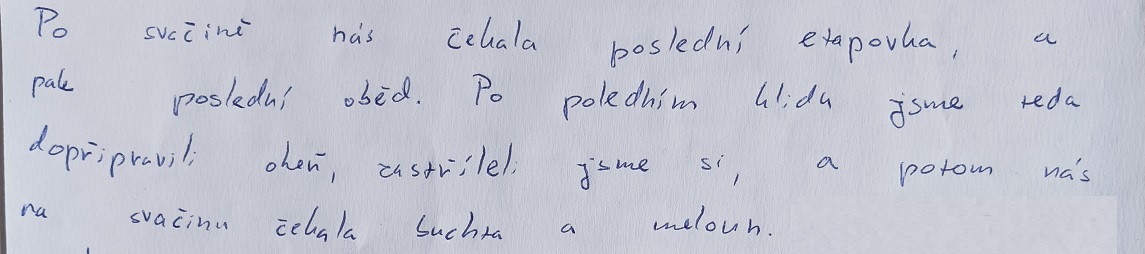 Po svačině nás čekala poslední etapovka, a
pak poslední oběd. Po poledním klidu jsme teda
dopřipravili oheň, zastříleli jsme si, a potom nás
na svačinu čekala buchta a meloun.